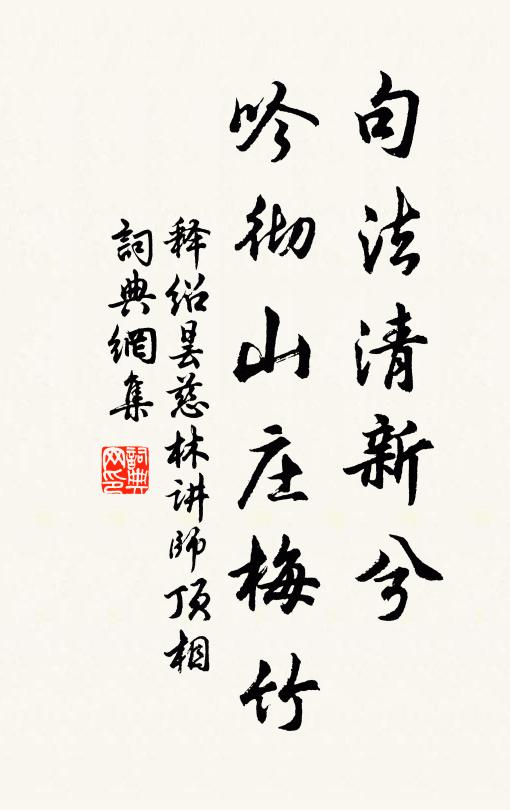 句法清新兮
吟彻山庄梅竹
释绍昙慈林讲师顶相
詞典網集
詞典
网印